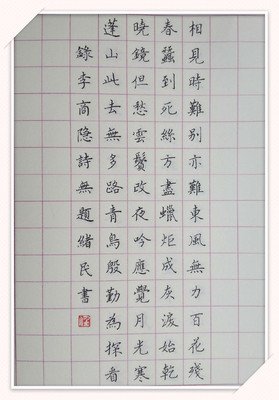 相見時難別亦難東風無力百花殘
春蠶到死絲方盡蠟炬成灰淚始乾
曉鏡但愁雲鬢改夜吟應覺月光寒
蓬山此去無多路青鳥殷勤為探看
錄李商隱詩無題緒民書